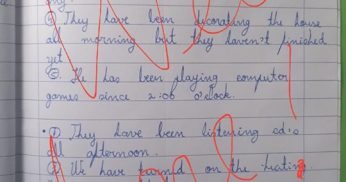 ④ They have been decorating the house
all morning but they haven't finished
yet
⑤. He has been playing computor
games since 2:06 o'clock.
• ① They have been listening cd:s
all afternoon.
② We have turnd on the heating